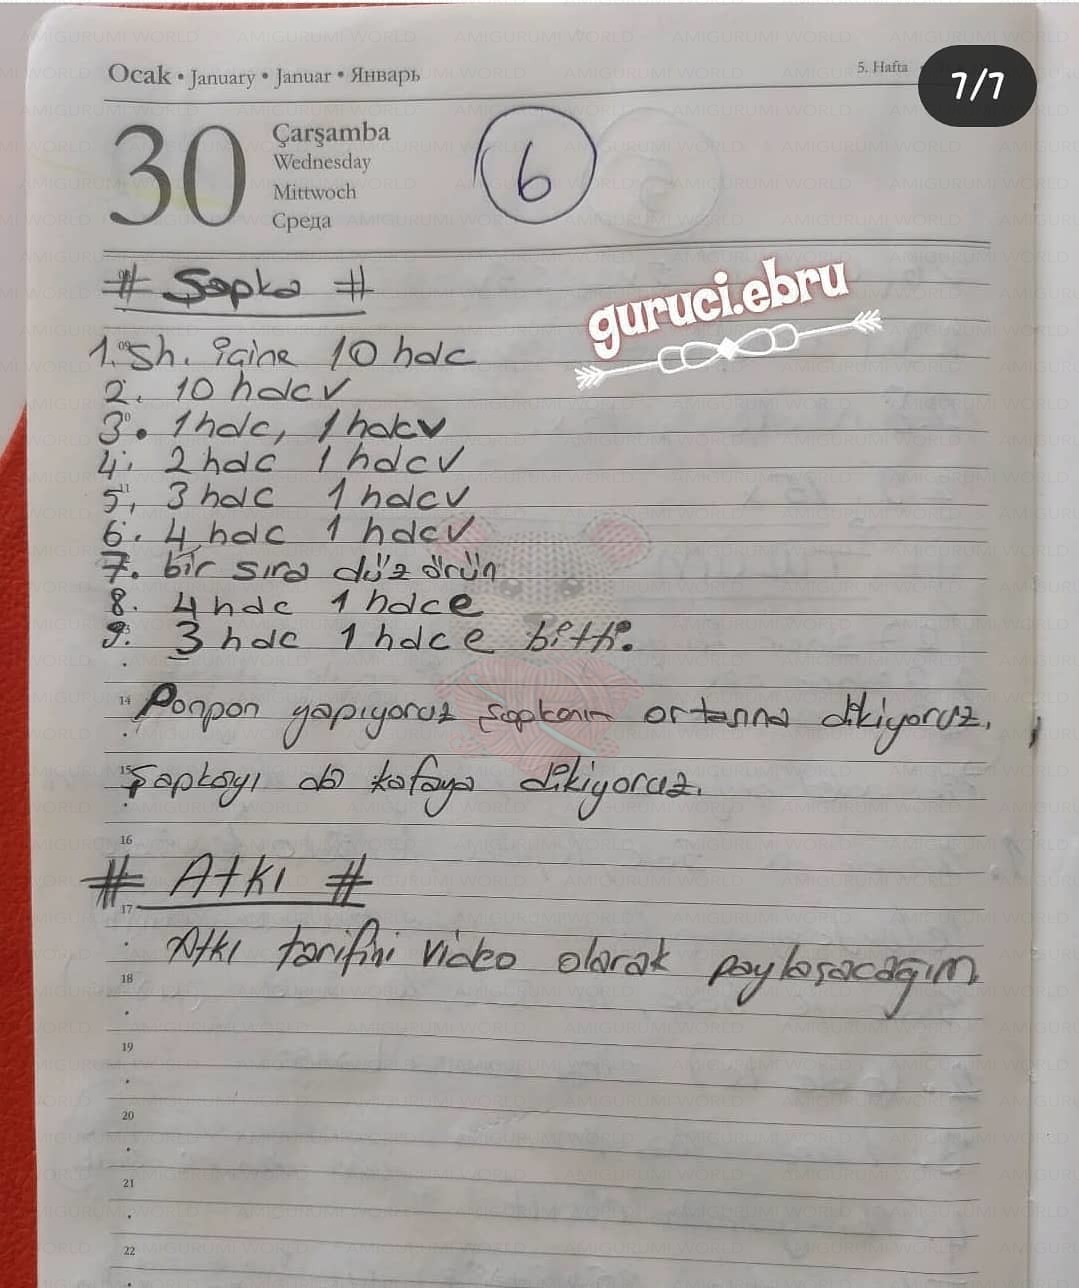 Ocak • January • Januar • Январь
5. Hafta
7/7
30
Çarşamba
Wednesday
Mittwoch
Среда
6
# Şapka #
guruci.ebru
1. Sh. içine 10 hdc
2. 10 hdcv
3. 1 hdc, 1 hdcv
4. 2 hdc 1 hdcv
5. 3 hdc 1 hdcv
6. 4 hdc 1 hdcv
7. bir sıra düz örün
8. 4 hdc 1 hdce
9. 3 hdc 1 hdce bitti.
14
Ponpon yapıyoruz şapkanın ortasına dikiyoruz.
15
Şapkayı da kafaya dikiyoruz.
16
# Atkı #
17
Atkı tarifini video olarak paylaşacağım
18
19
20
21
22
AMIGURUMI WORLD